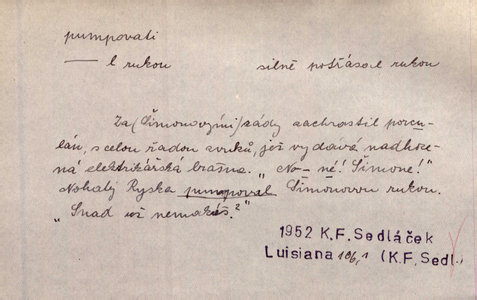 pumpovati
— l rukou silně potřásal rukou
Za (Šimonovými) zády zachrastil porcu-
lán, s celou řadou zvuků, jež vydává nadhoze-
ná elektrikářská brašna. „No-né! Šimone!"
Nohatý Ryska pumpoval Šimonovou rukou.
„Snad už nemakáš?"
1952 K.F. Sedláček
Luisiana 106,1 (K.F. Sedl.